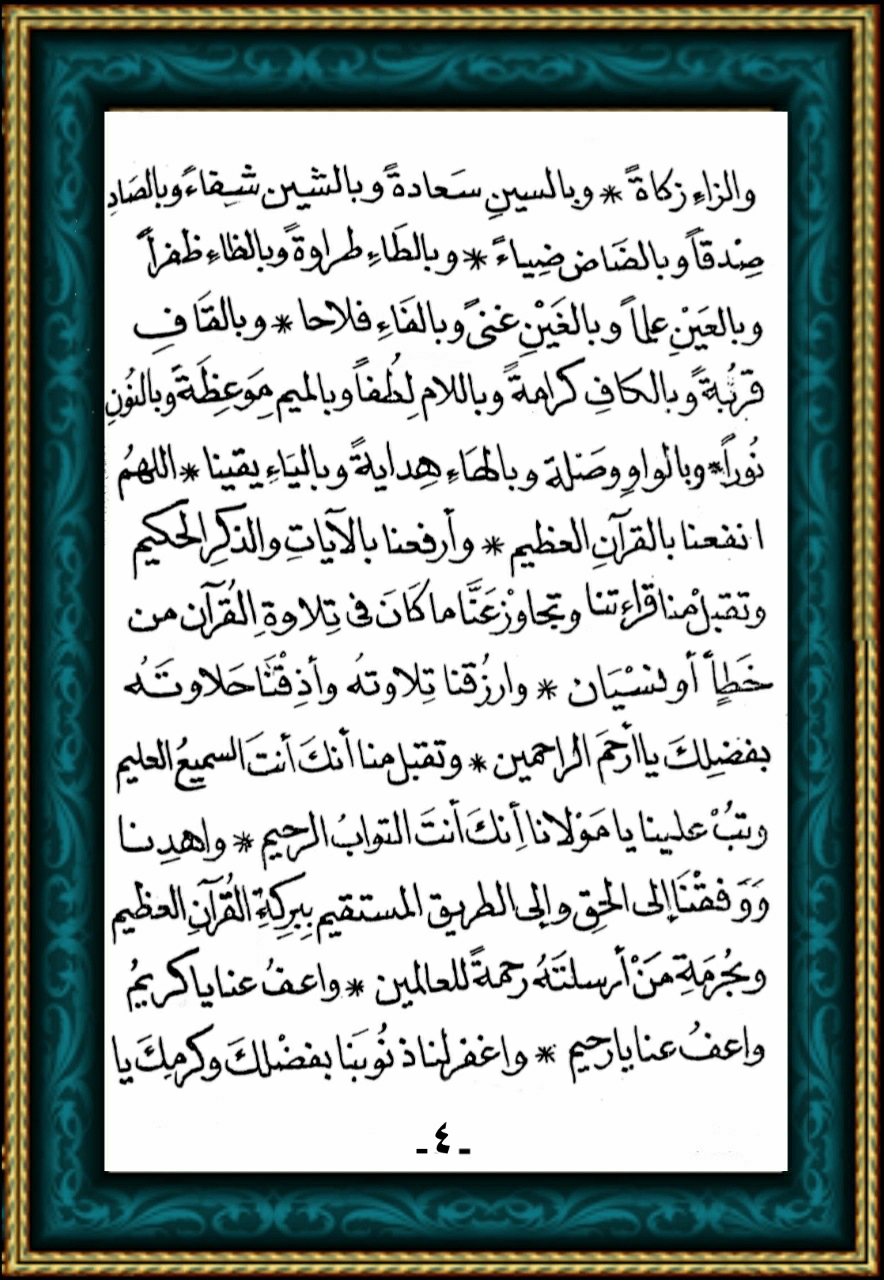 والزاءِ زكاةً * وبالسينِ سَعادةً وبالشين شِفاءً وبالصَادِ
صِدْقاً وبالضَاض ضِياءً * وبالطَاءِ طراوةً وبالظاءِ ظفراً
وبالعَيْنِ علماً وبالغَيْنِ غنىً وبالفَاءِ فلاحا * وبالقَافِ
قربُةً وبالكافِ كرامةً وباللام لُطفاً وبالميم مَوعِظَةً وبالنُونِ
نُوراً * وبالواوِ وصَنلة وبالهَاءِ هِدايةً وباليَاءِ يقينا * اللهمُ
انفعنا بالقرآنِ العظيم * وأرفعنا بالآياتِ والذكرِ الحكيم
وتقبلْ منا قراءِتنا وتجاوْزعَنَّا ما كَانَ فى تِلاوةِ القُرآن من
خَطٍأ أو نسْيَان * وارزُقنا تِلاوتهُ وأذِقْنَا حَلاوتَهُ
بفضلِكَ يا أرحمَ الراحمين * وتقبل منا أنكَ أنتَ السميعُ العليم
وتبُ علينا يا مَوْلانا أِنكَ أنتَ التوابُ الرحيم * واهدِنا
وَوَفقْنَا إلى الحَقِ وإلى الطريق المستقيم بِبركِةِ القُرآنِ العظيم
وبحُرمَةِ مَنْ أرسلتَهُ رحمةً للعالمين * واعفُ عنا يا كريمُ
واعفُ عنا يا رحيم * واغفرلنا ذنُوبَنا بفضْلكَ وكرمِكَ يا
- ٤ -